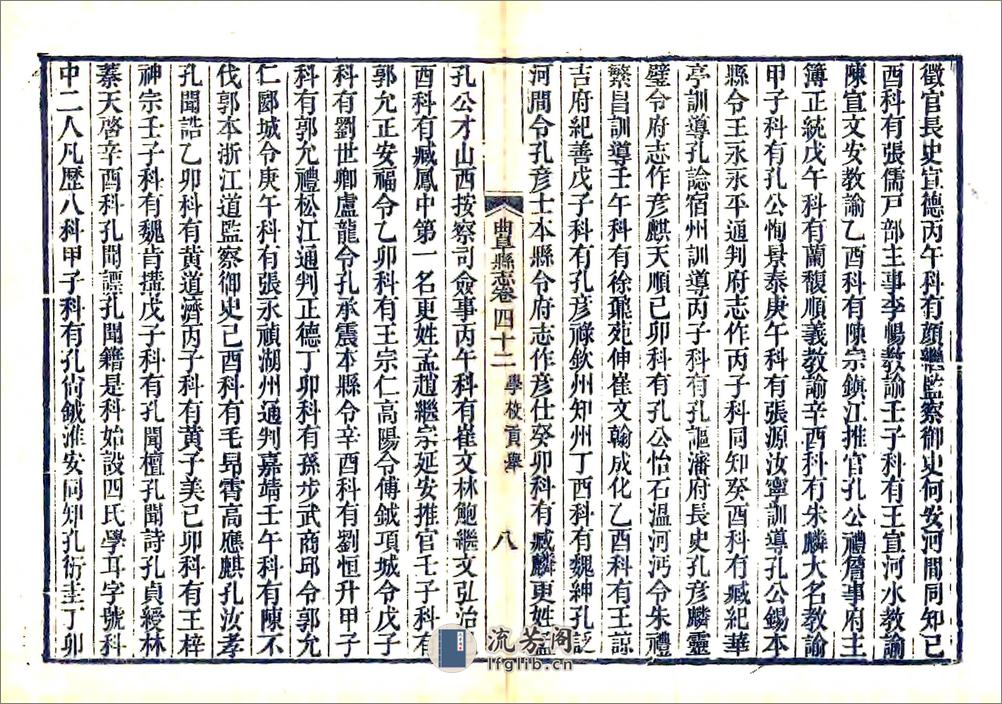 徵官長史宣德丙午科有顏繼監察御史何安河間同知己
酉科有張儒戸部主事李暢教諭壬子科有王宣河水教諭
陳宣文安教諭乙酉科有陳宗鎮江推官孔公禮詹事府主
簿正統戊午科有蘭馥順義教諭辛酉科有朱麟大名教諭
甲子科有孔公恂景泰庚午科有張源汝寧訓導孔公錫本
縣令王永永平通判府志作丙子科同知癸酉科有臧紀華
亭訓導孔諗宿州訓導丙子科有孔謳瀋府長史孔彦麟靈
璧令府志作彦麒天順己卯科有孔公怡石溫河沔令朱禮
繁昌訓導壬午科有徐 苑伸崔文翰成化乙酉科有王諒
吉府紀善戊子科有孔彦祿欽州知州丁酉科有魏紳孔訍
河間令孔彦士本縣令府志作彦仕癸卯科有臧麟更姓孟
曲阜縣志卷四十二 學校貢舉 八
孔公才山西按察司僉事丙午科有崔文林鮑繼文弘治
酉科有臧鳳中第一名更姓孟趙繼宗延安推官壬子科有
郭允正安福令乙卯科有王宗仁高陽令傅鉞項城令戊子
科有劉世卿盧龍令孔承震本縣令辛酉科有劉恒升甲子
科有郭允禮松江通判正德丁卯科有孫步武商邱令郭允
仁郾城令庚午科有張永禎湖州通判嘉靖壬午科有陳不
伐郭本浙江道監察御史己酉科有毛昂霄高應麒孔汝孝
孔聞誥乙卯科有黄道濟丙子科有黄子美己卯科有王梓
神宗壬子科有魏肯搵戊子科有孔聞檀孔聞詩孔貞綬林
蓁天啓辛酉科孔聞謤孔聞籍是科始設四氏學耳字號科
中二人凡歴八科甲子科有孔尙鉞淮安同知孔衍圭丁卯
流芳閣
lfglib.cn